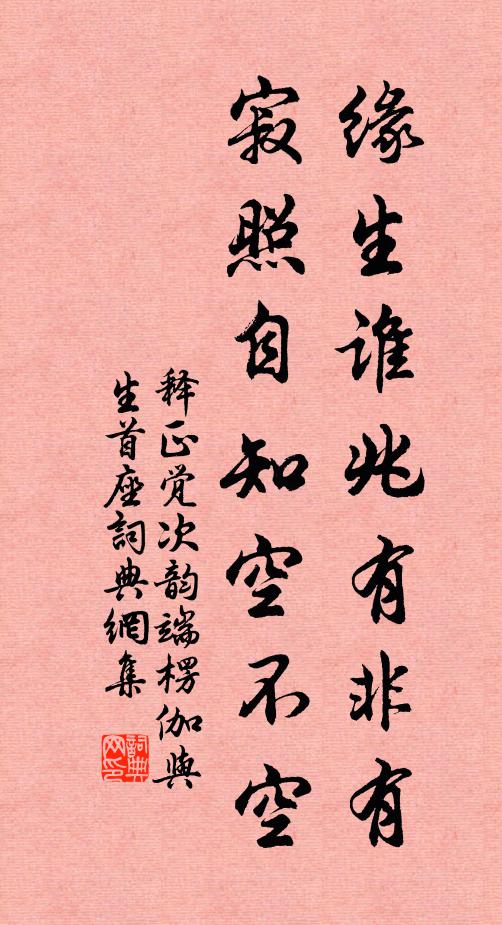 缘生谁兆有非有
寂照自知空不空
释正觉次韵端楞伽与
生首座词典網集
詞典
网印